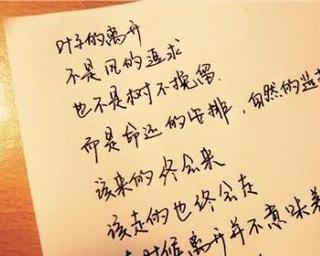 叶子的离开
不是风的追求
也不是树不挽留
而是命运的安排，自然的选
该来的终会来
该走的也终会走
有时候离开并不意味着